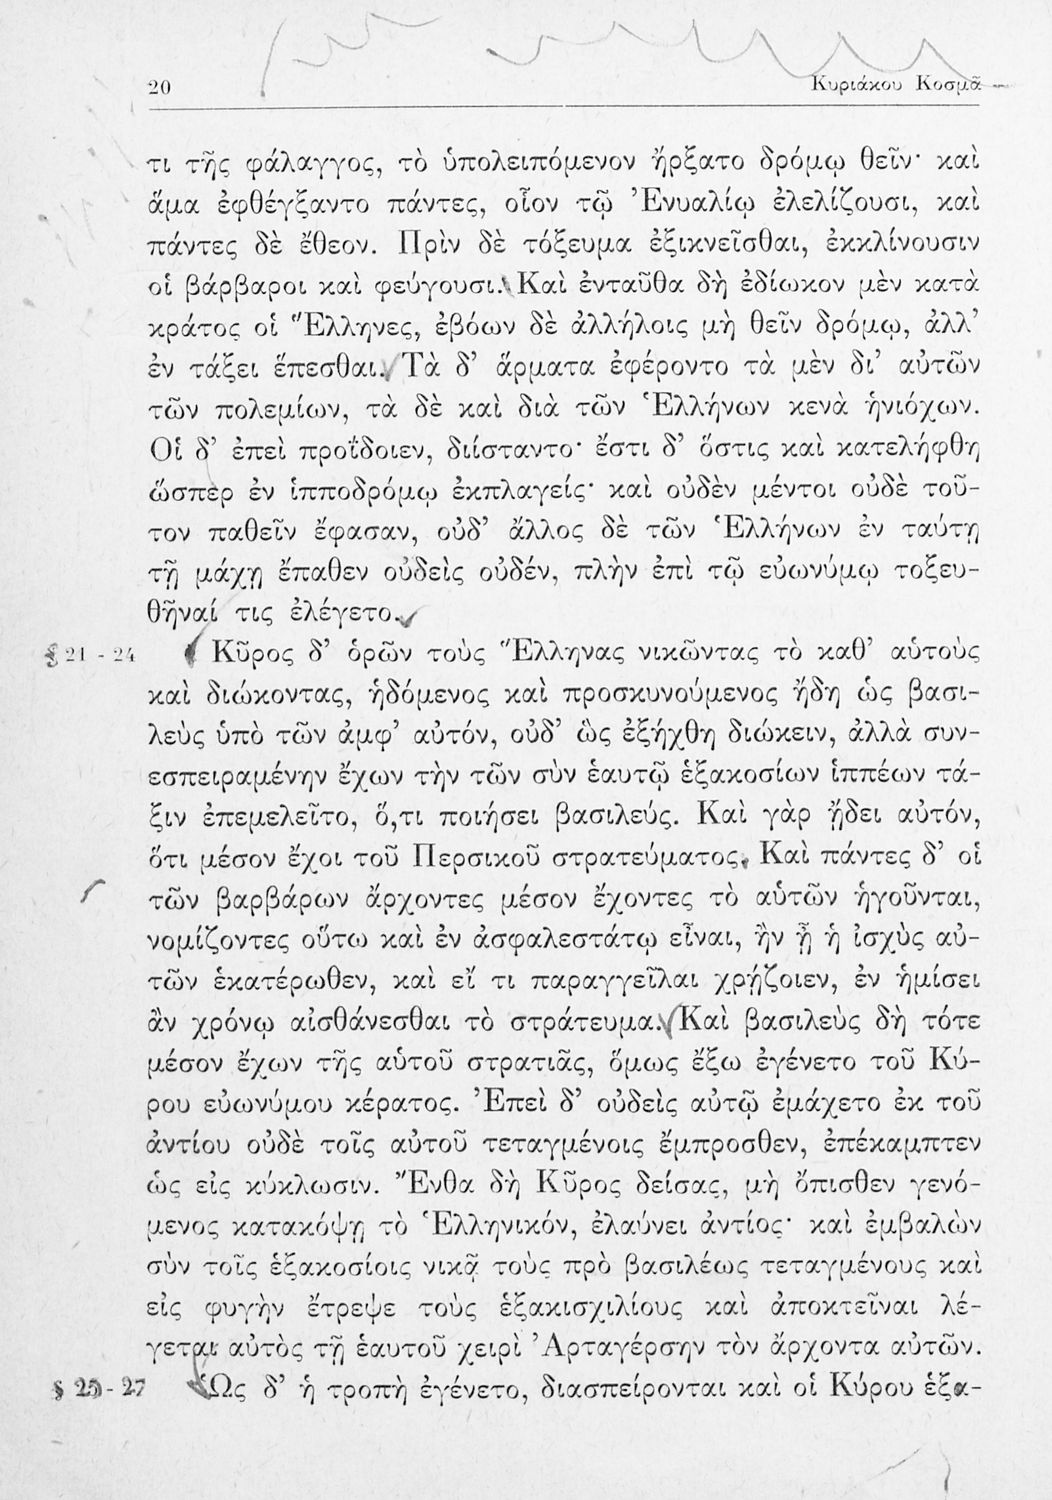 20
Κυριάκου Κοσμᾶ
τι τῆς φάλαγγος, τὸ ὑπολειπόμενον ἤρξατο δρόμῳ θεῖν· καὶ
ἅμα ἐφθέγξαντο πάντες, οἷον τῷ Ἐνυαλίῳ ἐλελίζουσι, καὶ
πάντες δὲ ἔθεον. Πρὶν δὲ τόξευμα ἐξικνεῖσθαι, ἐκκλίνουσιν
οἱ βάρβαροι καὶ φεύγουσι. Καὶ ἐνταῦθα δὴ ἐδίωκον μὲν κατὰ
κράτος οἱ Ἕλληνες, ἐβόων δὲ ἀλλήλοις μὴ θεῖν δρόμῳ, ἀλλ’
ἐν τάξει ἕπεσθαι. Τὰ δ’ ἅρματα ἐφέροντο τὰ μὲν δι’ αὐτῶν
τῶν πολεμίων, τὰ δὲ καὶ διὰ τῶν Ἑλλήνων κενὰ ἡνιόχων.
Οἱ δ’ ἐπεὶ προΐδοιεν, διίσταντο· ἔστι δ’ ὅστις καὶ κατελήφθη
ὥσπερ ἐν ἱπποδρόμῳ ἐκπλαγείς· καὶ οὐδὲν μέντοι οὐδὲ τοῦ-
τον παθεῖν ἔφασαν, οὐδ’ ἄλλος δὲ τῶν Ἑλλήνων ἐν ταύτῃ
τῇ μάχῃ ἔπαθεν οὐδεὶς οὐδέν, πλὴν ἐπὶ τῷ εὐωνύμῳ τοξευ-
θῆναί τις ἐλέγετο.
§ 21 - 24 Κῦρος δ’ ὁρῶν τοὺς Ἕλληνας νικῶντας τὸ καθ’ αὑτοὺς
καὶ διώκοντας, ἡδόμενος καὶ προσκυνούμενος ἤδη ὡς βασι-
λεὺς ὑπὸ τῶν ἀμφ’ αὐτόν, οὐδ’ ὣς ἐξήχθη διώκειν, ἀλλὰ συν-
εσπειραμένην ἔχων τὴν τῶν σὺν ἑαυτῷ ἑξακοσίων ἱππέων τά-
ξιν ἐπεμελεῖτο, ὅ,τι ποιήσει βασιλεύς. Καὶ γὰρ ᾔδει αὐτόν,
ὅτι μέσον ἔχοι τοῦ Περσικοῦ στρατεύματος. Καὶ πάντες δ’ οἱ
τῶν βαρβάρων ἄρχοντες μέσον ἔχοντες τὸ αὑτῶν ἡγοῦνται,
νομίζοντες οὕτω καὶ ἐν ἀσφαλεστάτῳ εἶναι, ἢν ᾖ ἡ ἰσχὺς αὐ-
τῶν ἑκατέρωθεν, καὶ εἴ τι παραγγεῖλαι χρῄζοιεν, ἐν ἡμίσει
ἂν χρόνῳ αἰσθάνεσθαι τὸ στράτευμα. Καὶ βασιλεὺς δὴ τότε
μέσον ἔχων τῆς αὑτοῦ στρατιᾶς, ὅμως ἔξω ἐγένετο τοῦ Κύ-
ρου εὐωνύμου κέρατος. Ἐπεὶ δ’ οὐδεὶς αὐτῷ ἐμάχετο ἐκ τοῦ
ἀντίου οὐδὲ τοῖς αὐτοῦ τεταγμένοις ἔμπροσθεν, ἐπέκαμπτεν
ὡς εἰς κύκλωσιν. Ἔνθα δὴ Κῦρος δείσας, μὴ ὄπισθεν γενό-
μενος κατακόψῃ τὸ Ἑλληνικόν, ἐλαύνει ἀντίος· καὶ ἐμβαλὼν
σὺν τοῖς ἑξακοσίοις νικᾷ τοὺς πρὸ βασιλέως τεταγμένους καὶ
εἰς φυγὴν ἔτρεψε τοὺς ἑξακισχιλίους καὶ ἀποκτεῖναι λέ-
γεται αὐτὸς τῇ ἑαυτοῦ χειρὶ Ἀρταγέρσην τὸν ἄρχοντα αὐτῶν.
§ 25 - 27 Ὡς δ’ ἡ τροπὴ ἐγένετο, διασπείρονται καὶ οἱ Κύρου ἑξα-